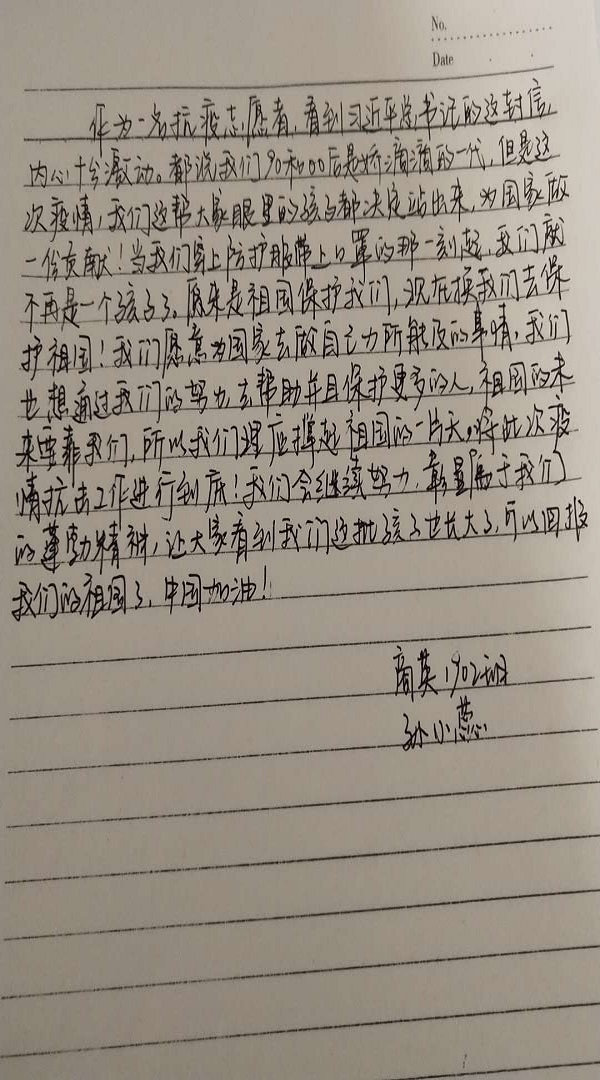 No.
Date
作为一名抗疫志愿者,看到习近平总书记的这封信,
内心十分激动。都说我们90和00后是娇滴滴的一代,但是这
次疫情,我们这帮大家眼里的孩子都决定站出来,为国家做
一份贡献!当我们穿上防护服带上口罩的那一刻起,我们就
不再是一个孩子了。原来是祖国保护我们,现在换我们去保
护祖国!我们愿意为国家去做自己力所能及的事情,我们
也想通过我们的努力去帮助并且保护更多的人,祖国的未
来要靠我们,所以我们理应撑起祖国的一片天。将此次疫
情抗击工作进行到底!我们会继续努力,彰显属于我们
的蓬勃精神,让大家看到我们这批孩子也长大了,可以回报
我们的祖国了,中国加油!
商英1902班
孙小蕊